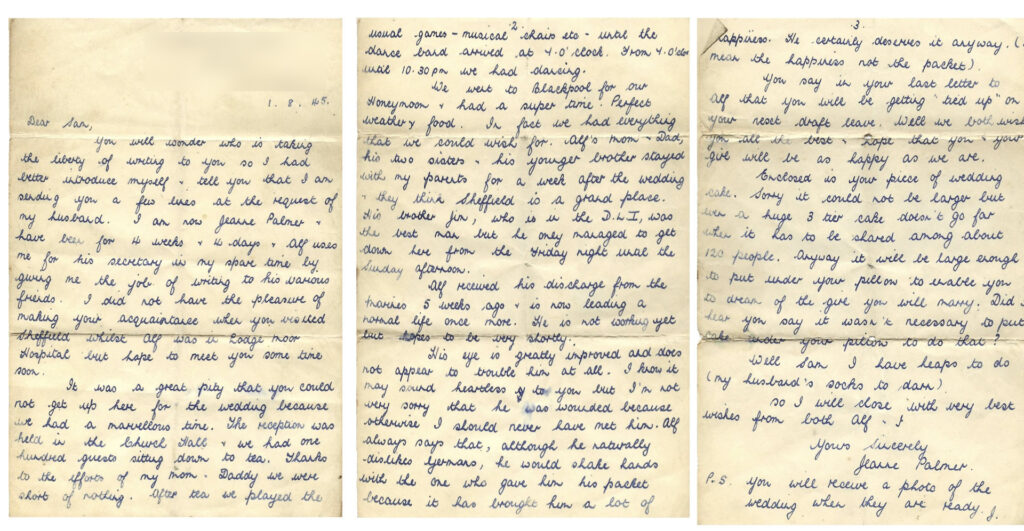 1. 8. 45.
Dear Sam,
You will wonder who is taking
the liberty of writing to you so I had
better introduce myself & tell you that I am
sending you a few lines at the request of
my husband. I am now Jeanne Palmer &
have been for 4 weeks & 4 days & Alf uses
me for his secretary in my spare time by
giving me the job of writing to his various
friends. I did not have the pleasure of
making your acquaintance when you visited
Sheffield whilst Alf was in Lodge Moor
Hospital but hope to meet you some time
soon.
It was a great pity that you could
not get up here for the wedding because
we had a marvellous time. The reception was
held in the Church Hall & we had one
hundred guests sitting down to tea. Thanks
to the efforts of my Mom & Daddy we were
short of nothing. After tea we played the
2.
usual games - musical chairs etc - until the
dance band arrived at 7.0'clock. From 7.0'clock
until 10.30 pm we had dancing.
We went to Blackpool for our
Honeymoon & had a super time. Perfect
weather & food. In fact we had everything
that we could wish for. Alf's mom & Dad,
his two sisters & his younger brother stayed
with my parents for a week after the wedding
& they think Sheffield is a grand place.
His brother Jim, who is in the D.L.I, was
the best man but he only managed to get
down here from the Friday night until the
Sunday afternoon.
Alf received his discharge from the
Marines 5 weeks ago & is now leading a
normal life once more. He is not working yet
but hopes to be very shortly.
His eye is greatly improved and does
not appear to trouble him at all. I know it
may sound heartless to you but I'm not
very sorry that he was wounded because
otherwise I should never have met him. Alf
always says that, although he naturally
dislikes Germans, he would shake hands
with the one who gave him his packet
because it has brought him a lot of
3.
happiness. He certainly deserves it anyway. (I
mean the happiness not the packet).
You say in your last letter to
Alf that you will be getting "tied up" on
your next draft leave. Well we both wish
you all the best & hope that you & your
girl will be as happy as we are.
Enclosed is your piece of wedding
cake. Sorry it could not be larger but
even a huge 3 tier cake doesn't go far
when it has to be shared among about
120 people. Anyway it will be large enough
to put under your pillow to enable you
to dream of the girl you will marry. Did I
hear you say it wasn't necessary to put
cake under your pillow to do that?
Well Sam I have heaps to do
(my husband's socks to darn)
so I will close with very best
wishes from both Alf & I
Yours Sincerely
Jeanne Palmer.
P.S. You will receive a photo of the
wedding when they are ready. J.